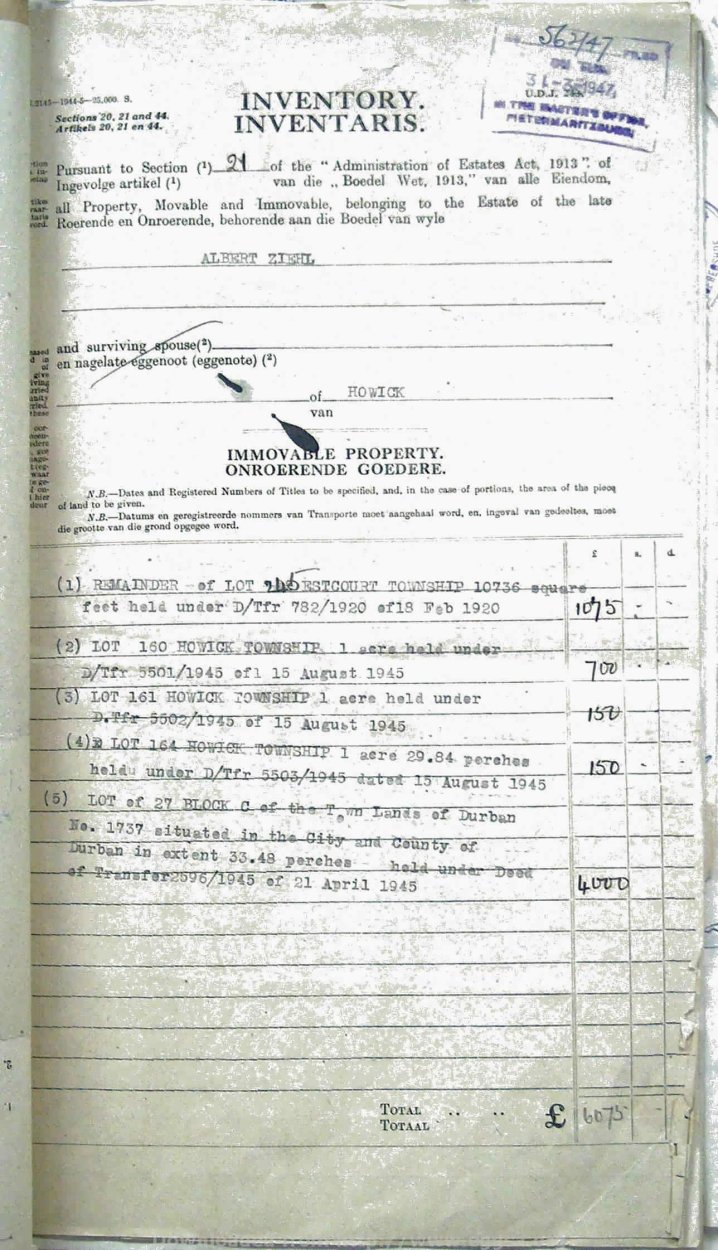 562/47
FILED
31-3-1947
U.D.J.
IN THE MASTER'S OFFICE,
PIETERMARITZBURG,
2145—1944-5—25,000. S.
Sections 20, 21 and 44.
Artikels 20, 21 en 44.
INVENTORY.
INVENTARIS.
Pursuant to Section (¹) 21 of the "Administration of Estates Act, 1913", of
Ingevolge artikel (¹) van die „Boedel Wet, 1913," van alle Eiendom,
all Property, Movable and Immovable, belonging to the Estate of the late
Roerende en Onroerende, behorende aan die Boedel van wyle
ALBERT ZIEHL
and surviving spouse(²)
en nagelate eggenoot (eggenote) (²)
of HOWICK
van
IMMOVABLE PROPERTY.
ONROERENDE GOEDERE.
N.B.—Dates and Registered Numbers of Titles to be specified, and, in the case of portions, the area of the piece
of land to be given.
N.B.—Datums en geregistreerde nommers van Transporte moet aangehaal word, en, ingeval van gedeeltes, moet
die grootte van die grond opgegee word.
£ s. d.
(1) REMAINDER of LOT ESTCOURT TOWNSHIP 10736 square
feet held under D/Tfr 782/1920 of18 Feb 1920 1075 - -
(2) LOT 160 HOWICK TOWNSHIP 1 acre held under
D/Tfr 5501/1945 of1 15 August 1945 700 - -
(3) LOT 161 HOWICK TOWNSHIP 1 acre held under
D.Tfr 5502/1945 of 15 August 1945 150
(4) LOT 164 HOWICK TOWNSHIP 1 acre 29.84 perches
held under D/Tfr 5503/1945 dated 15 August 1945 150 - -
(5) LOT of 27 BLOCK C of the Town Lands of Durban
No. 1737 situated in the City and County of
Durban in extent 33.48 perches held under Deed
of Transfer2596/1945 of 21 April 1945 4000
TOTAL .. .. £ 6075 - -
TOTAAL